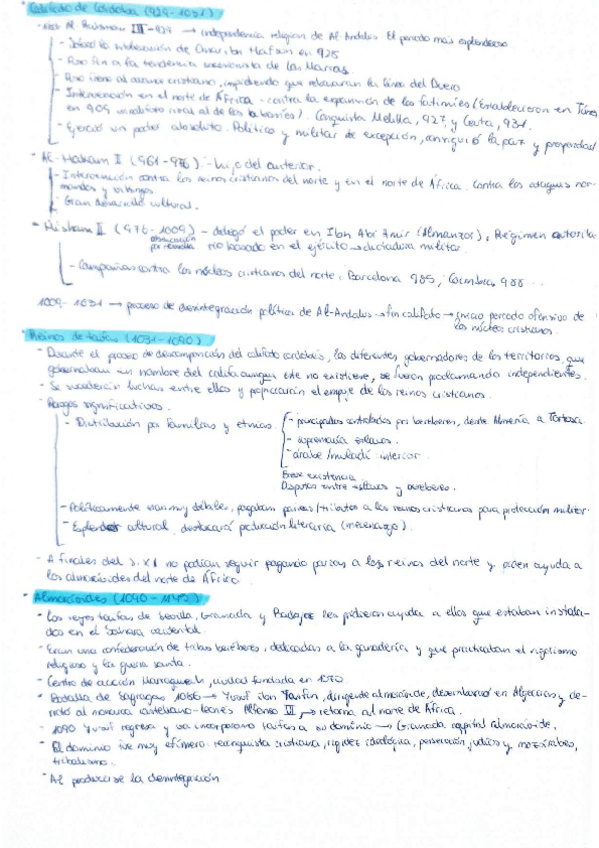 Califato de Córdoba (929-1031)
- Abd Al Rahman III - 929 → independencia religiosa de Al-Andalus. El periodo más esplendoroso
- Sofocó la sublevación de Omar ibn Hafsun en 928
- Puso fin a la tendencia secesionista de las Marcas.
- Puso freno al avance cristiano, impidiendo que rebasaran la línea del Duero.
- Intervención en el norte de África - contra la expansión de los fatimíes (Establecieron en Túnez
en 909 un califato rival al de los abasíes). Conquista Melilla, 927, y Ceuta, 931.
- Ejerció un poder absoluto. Político y militar de excepción, consiguió la paz y prosperidad
- Al-Hakam II (961-976) - hijo del anterior.
- Intervención contra los reinos cristianos del norte y en el norte de África. Contra los ataques nor-
mandos y vikingos
- Gran desarrollo cultural.
- Hisham II (976-1009) - delegó el poder en Ibn Abi Amir (Almanzor). Régimen autorita-
rio basado en el ejército → dictadura militar.
- Campañas contra los núcleos cristianos del norte, Barcelona 985, Coimbra, 988...
1009-1031 → proceso de desintegración política de Al-Andalus → fin califato → inicio periodo ofensivo de
los núcleos cristianos.
Reinos de taifas (1031-1090)
- Durante el proceso de descomposición del califato cordobés, los diferentes gobernadores de los territorios, que
gobernaban en nombre del califa aunque este no existiese, se fueron proclamando independientes.
- Se sucederán luchas entre ellos y propiciarán el empuje de los reinos cristianos.
- Rasgos significativos.
- Distribución por familias y etnias.
- principados controlados por bereberes, desde Almería a Tortosa.
- supremacía eslavos.
- árabe/muladí: interior.
Breve existencia
Disputas entre eslavos y bereberes.
- Políticamente eran muy débiles, pagaban parias/tributos a los reinos cristianos para protección militar.
- Esplendor cultural, destacará producción literaria (mecenazgo).
- A finales del s. XI no podían seguir pagando parias a los reinos del norte y piden ayuda a
los almorávides del norte de África.
Almorávides (1090-1145)
- Los reyes taifas de Sevilla, Granada y Badajoz les pidieron ayuda a ellos que estaban instala-
dos en el Sahara occidental.
- Eran una confederación de tribus bereberes, dedicadas a la ganadería y que practicaban el rigorismo
religioso y la guerra santa.
- Centro de acción Marraquech, ciudad fundada en 1070
- Batalla de Sagrajas 1086 → Yusuf ibn Tasfin, dirigente almorávide, desembarcó en Algeciras y de-
rrotó al monarca castellano-leonés Alfonso VI → retorna al norte de África.
- 1090 Yusuf regresa y va incorporando taifas a su dominio → Granada capital almorávide.
- El dominio fue muy efímero: reconquista cristiana, rigidez ideológica, persecución judíos y mozárabes,
tribalismo.
- Al producirse la desintegración